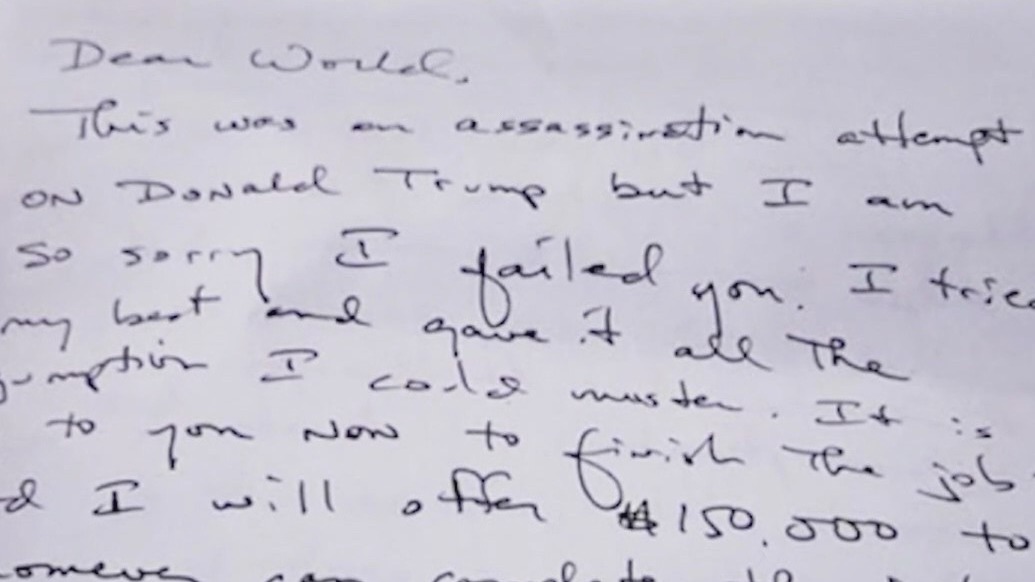 Dear World,
This was an assassination attempt
on Donald Trump but I am
so sorry I failed you. I tried
my best and gave it all the
gumption I could muster. It is
to you now to finish the job
d I will offer $150,000 to
omever can complete